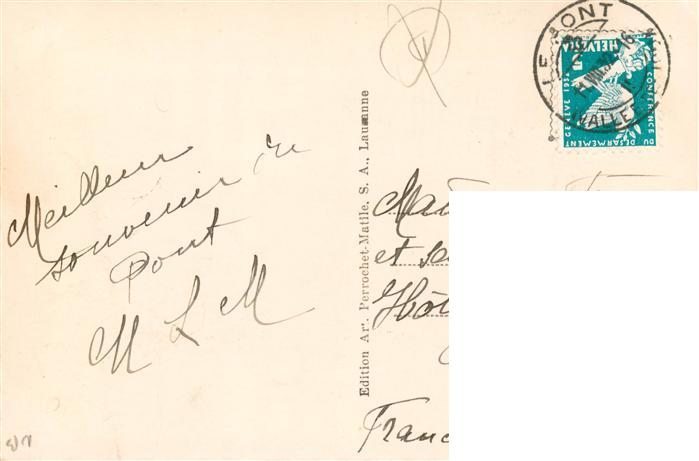 Meilleur
souvenir du
Pont
M L M
Edition Art. Perrochet-Matile, S. A., Lausanne
LE PONT
(VALLÉE
HELVETIA
CONFÉRENCE
DU DÉSARMEMENT
GENÈVE 1932
et
Franc